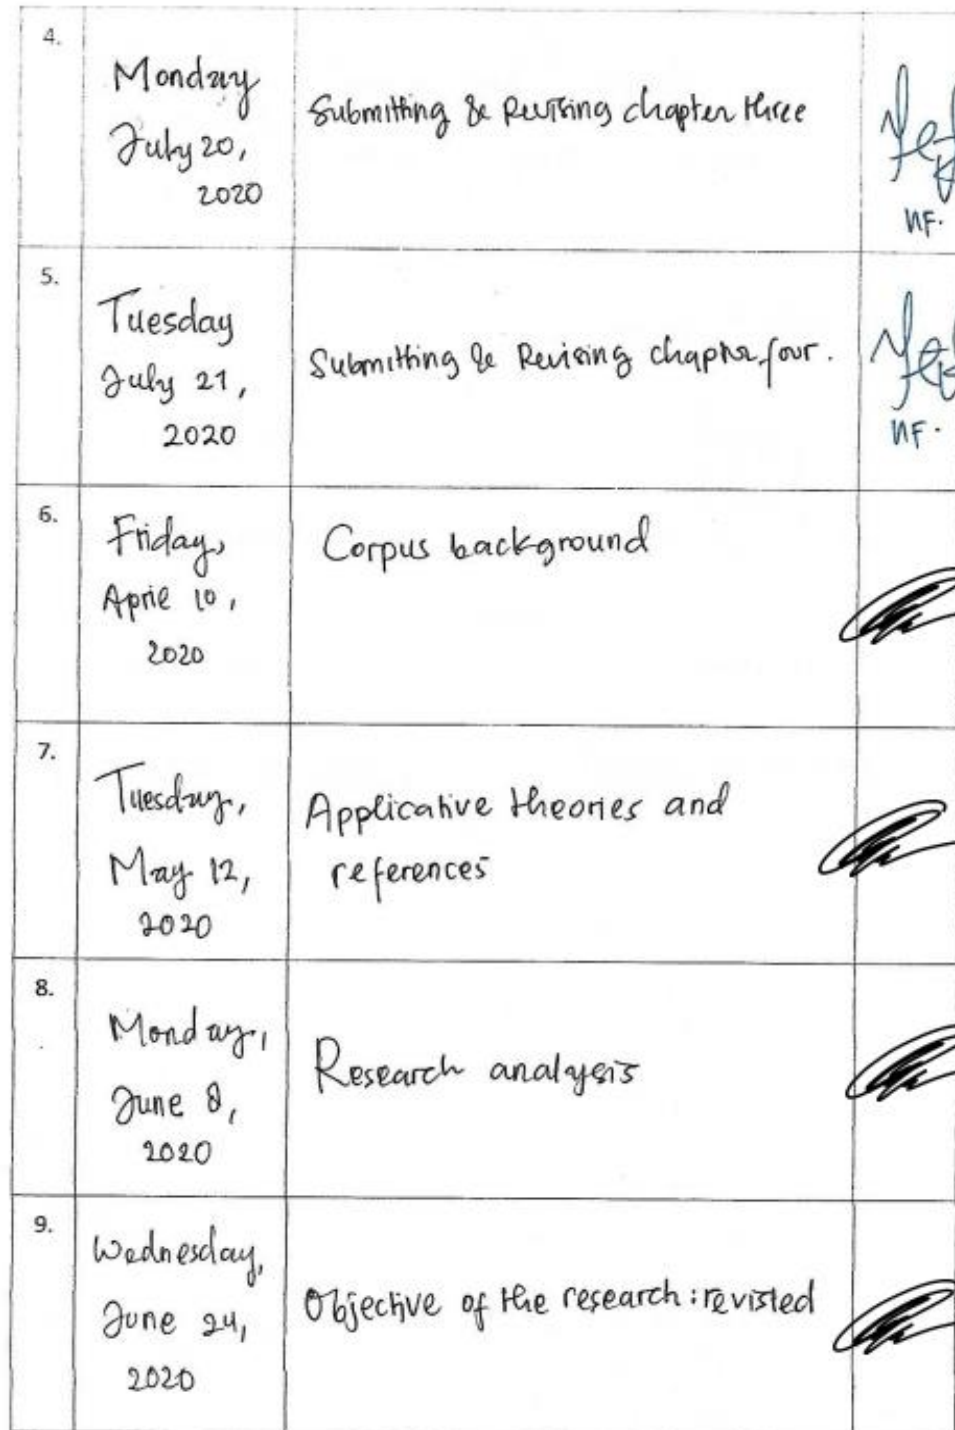 4.
Monday
July 20,
2020
Submitting & Revising chapter three
NF.
5.
Tuesday
July 21,
2020
Submitting & Revising chapter four.
NF.
6.
Friday,
April 10,
2020
Corpus background
7.
Tuesday,
May 12,
2020
Applicative theories and
references
8.
Monday,
June 8,
2020
Research analysis
9.
Wednesday,
June 24,
2020
Objective of the research : revisted